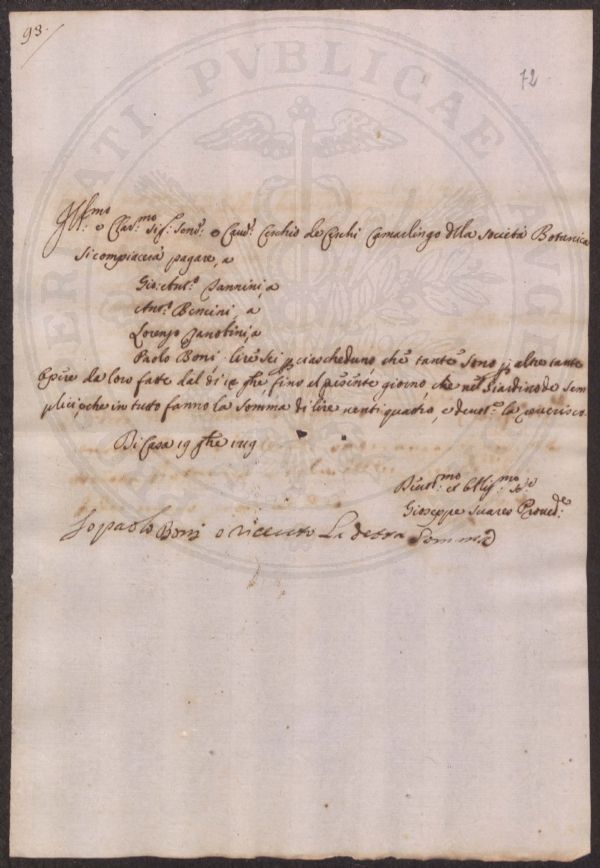 93.
72
Ill.mo e Clar.mo Sig.r Sen.re e Cav.re Cerchio de Cerchi Camarlingo della Società Botanica
Si compiacerà pagare, a
Gio: Ant.o Nannini, a
Ant.o Bencini, a
Lorenzo Zanobini, a
Paolo Boni lire sei p ciascheduno che tante sono p altre tante
Opere da loro fatte dal dì 9bre fino al presente giorno che nel Giardino de Sem
plici, che in tutto fanno la somma di lire venti quatro, e devot.e la riverisco.
Di Casa 19 9bre 1719
Devot.mo et Obblig.mo Se.re
Giuseppe Suares Proved.re
Io paolo Boni o riceuto La detta Somma
PUBLICAE